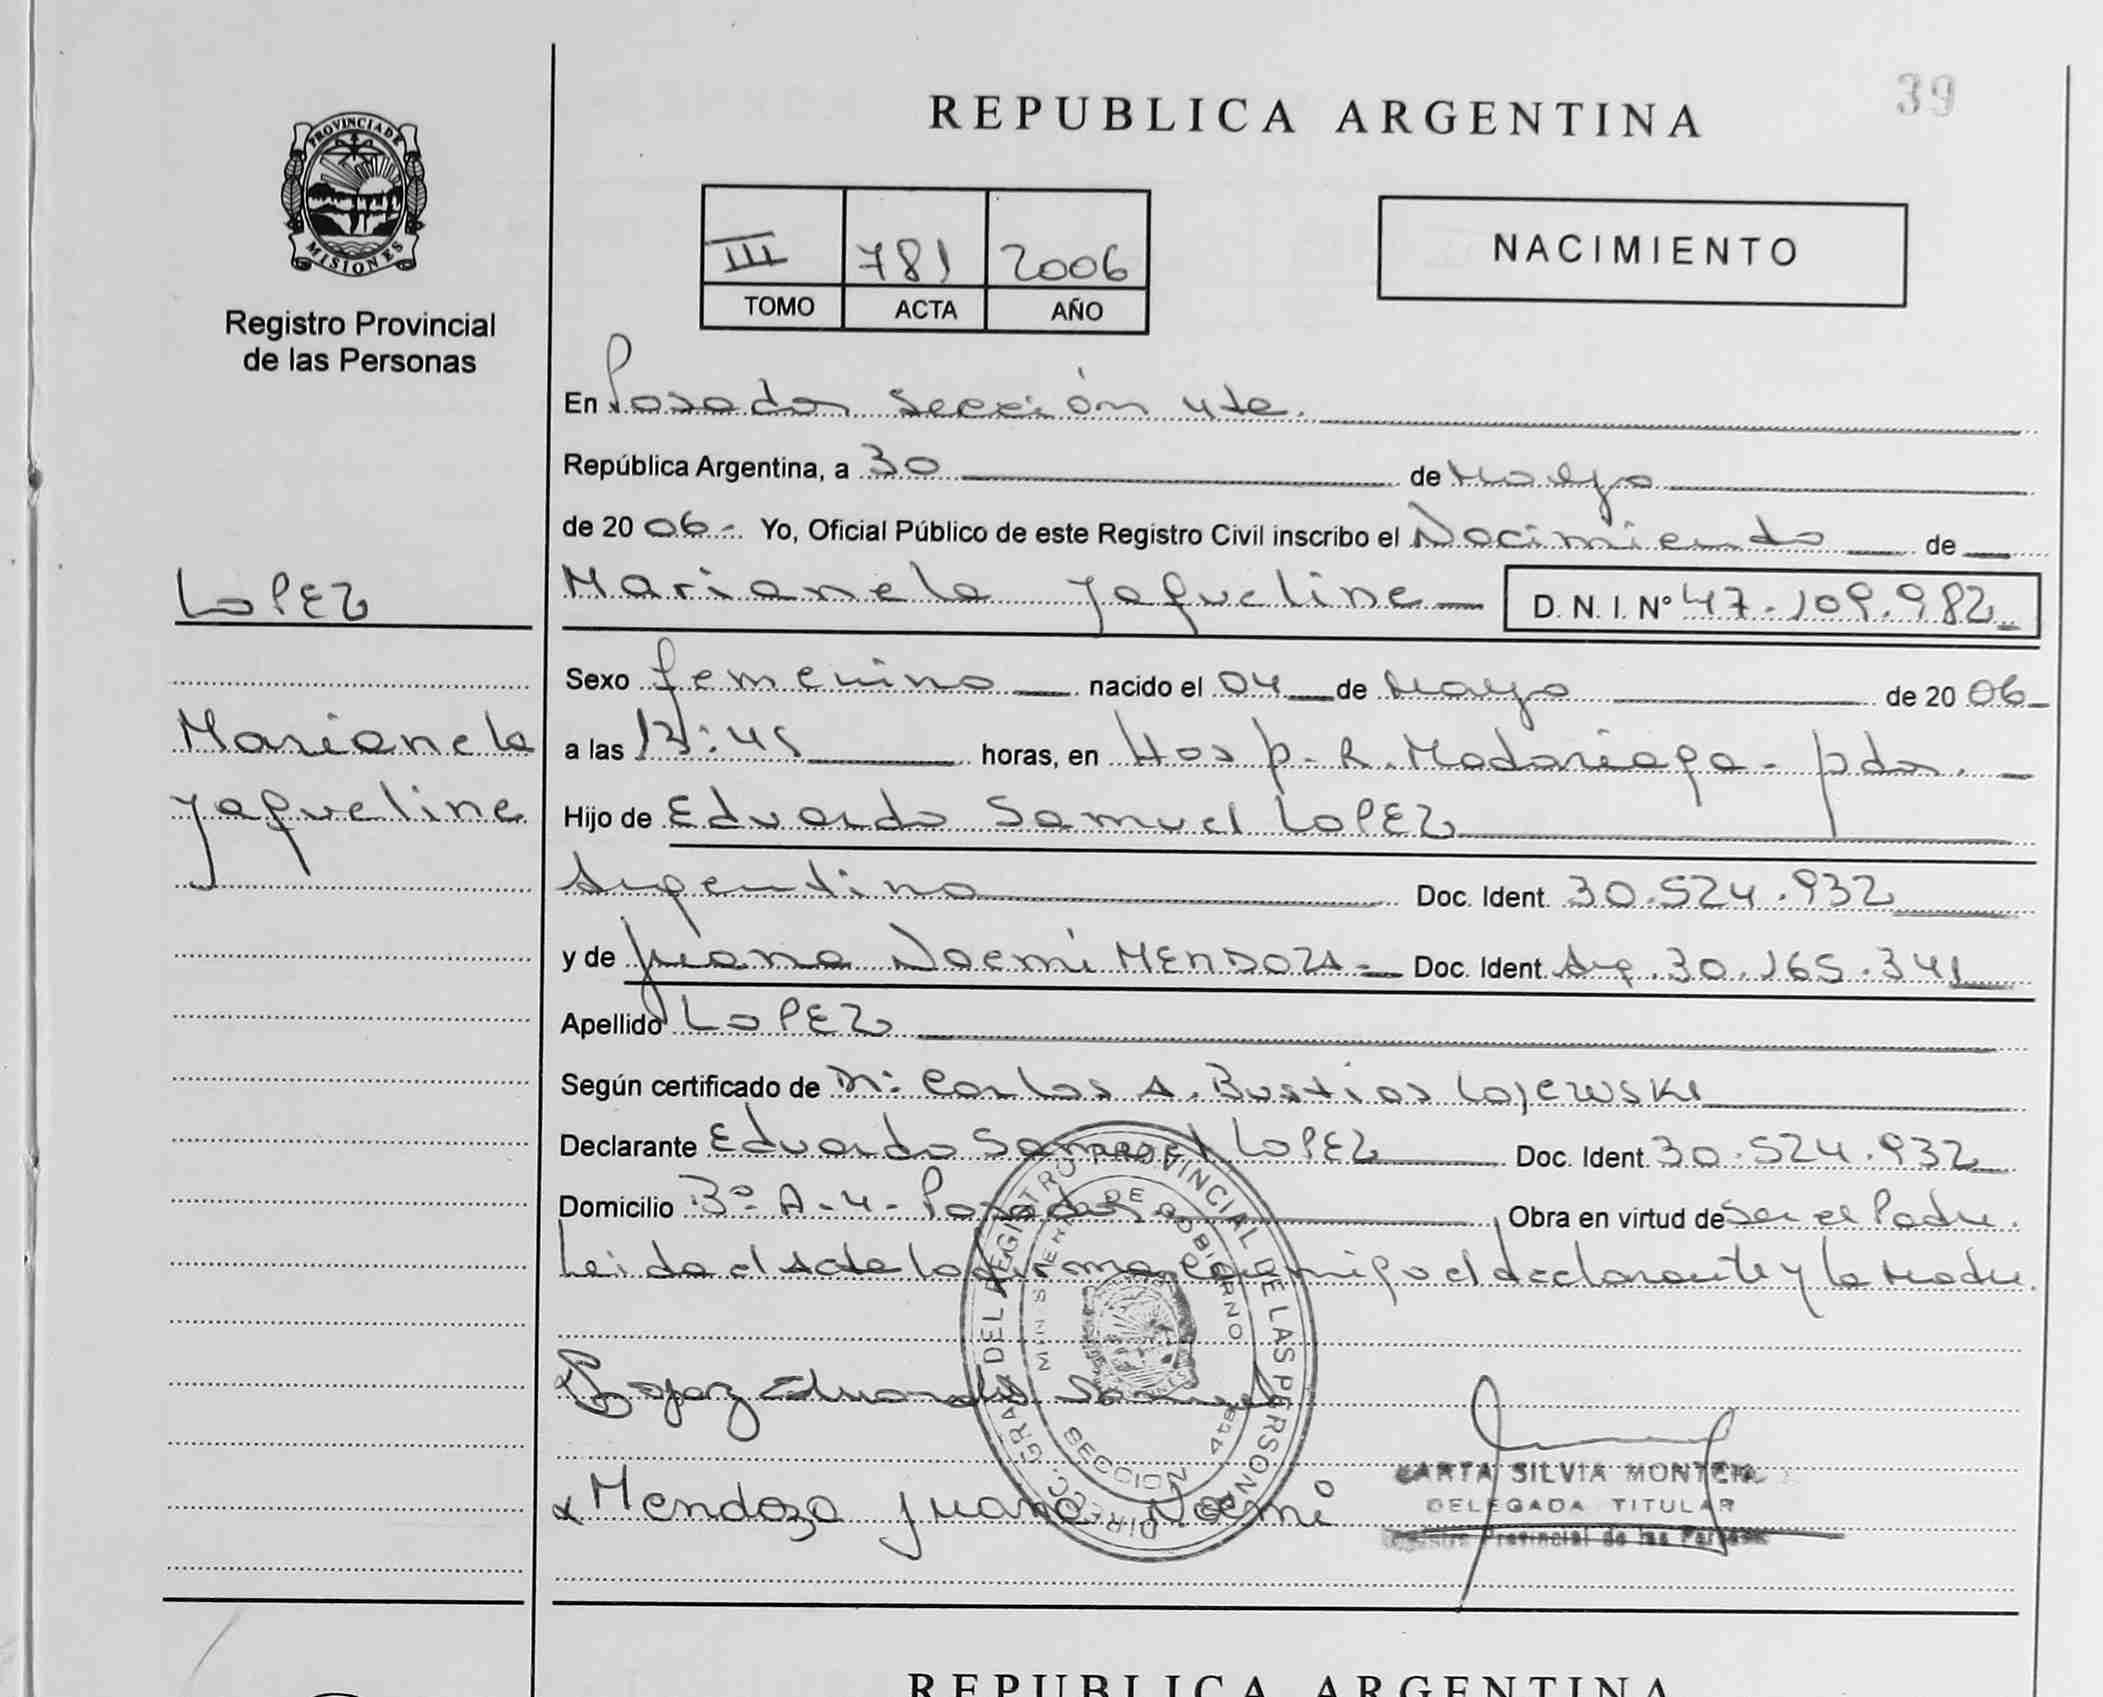 39
REPUBLICA ARGENTINA
PROVINCIA DE
MISIONES
Registro Provincial
de las Personas
III 781 2006
TOMO ACTA AÑO
NACIMIENTO
En Posadas sección 4ta.
República Argentina, a 30 de Mayo
de 20 06.- Yo, Oficial Público de este Registro Civil inscribo el Nacimiento de
LOPEZ
Marianela Jaqueline D. N. I. Nº 47.109.982
Sexo femenino nacido el 04 de Mayo de 20 06
Marianela
Jaqueline
a las 13:45 horas, en Hosp. R. Madariaga - pdas.
Hijo de Eduardo Samuel LOPEZ
Argentino Doc. Ident. 30.524.932
y de Juana Noemi MENDOZA Doc. Ident. Arg. 30.165.341
Apellido LOPEZ
Según certificado de Carlos A. Bustios Lojewski
Declarante Eduardo Samuel LOPEZ Doc. Ident. 30.524.932
Domicilio Bº A-4- Posadas Obra en virtud de Ser el Padre.
Leida el Acta la firma conmigo el declarante y la Madre.
DIREC. GRAL. DEL REGISTRO PROVINCIAL DE LAS PERSONAS
MINISTERIO DE GOBIERNO
SECCION 4ta
Lopez Eduardo Samuel
x Mendoza Juana Noemi
SILVIA
DELEGADA TITULAR
Registro Provincial de las Personas
REPUBLICA ARGENTINA